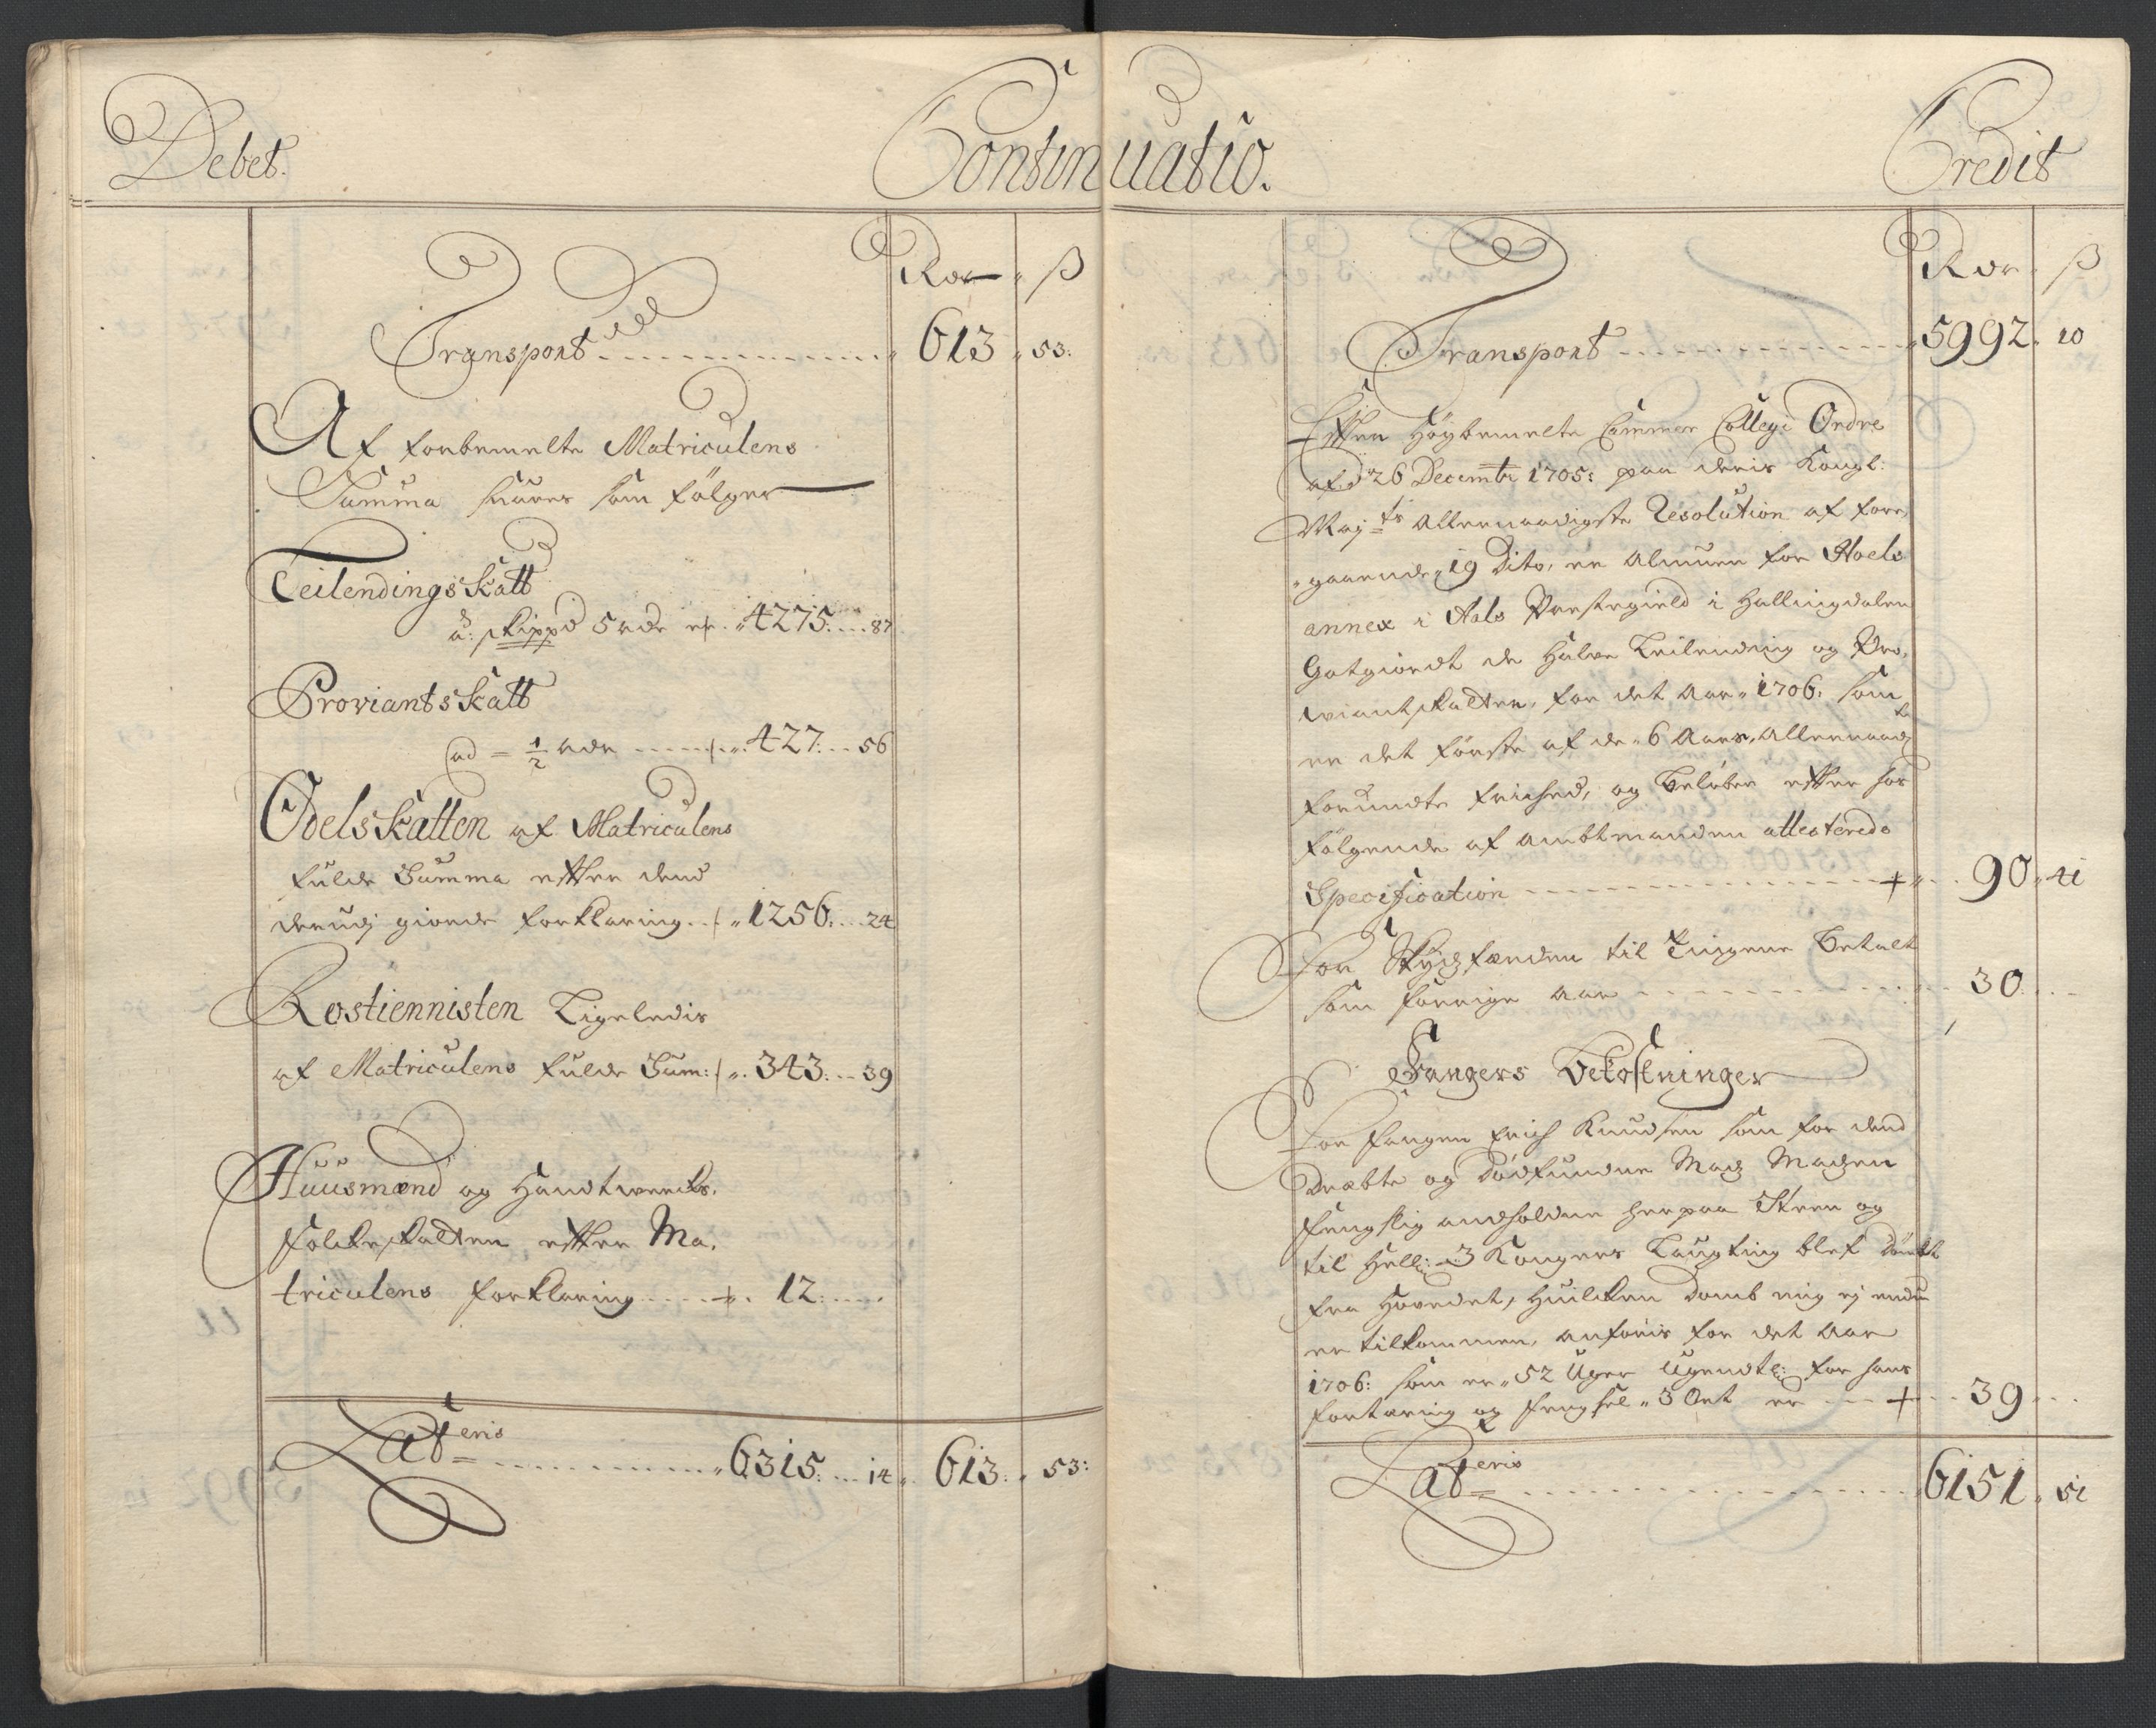 Debet.
Continuatio.
Credit
Rdr ß
Transport 613 53:
Af forbemelte Matriculens
Summa svares som følger
Leilendings Skatt
a: skippd 5 rdr er 4275: 87
Proviants Skatt
ad ½ rdr 427: 56
Odels Skatten af Matriculens
fulde Summa efter dend
derudj giorde forklaring 1256: 24
Rostiennisten Ligeledis
af Matriculens fulde Sum: 343: 39
Huusmænd og Handtwercks
folckeskatten efter Ma,
triculens forklaring 12:
Lateris 6315: 14 613: 53:
Rdr ß
Transport 5992 10
Efter Høybemelte Cammer Collegi Ordre
af d 26 Decembr 1705: paa deris Kongl:
Maj:ts Allernaadigste Resolution af fore,
gaaende 19 Dito, er Almuen for Hoels
annex i Aals Præstegield i Hallingdalen
Gotgiordt de halve Leilending og Pro,
viantskatter, for det Aar 1706: som
er det første af de 6 Aars Allernaadg
forundte frished, og beløber efter hos
følgende af Ambtmanden attesterede
Specification 90 41
For Skydsfærden til Tingene betalt
som forrige Aar 30
Fangers Bekostninger
For fangen Erich Knudsen som for dend
Dræbte og dødfundne Mads Madsen
fengslig andholdne herpaa Steen og
til Hell: 3 Kongers Laugting blef dømbt
fra Hovedet, Huilcken Domb mig ej endnu
er tilkommen, anføris for det Aar
1706: som er 52 Uger Ugendtl: for hans
fortæring og fengsel 3 Ort er 39
Lateris 6151 51